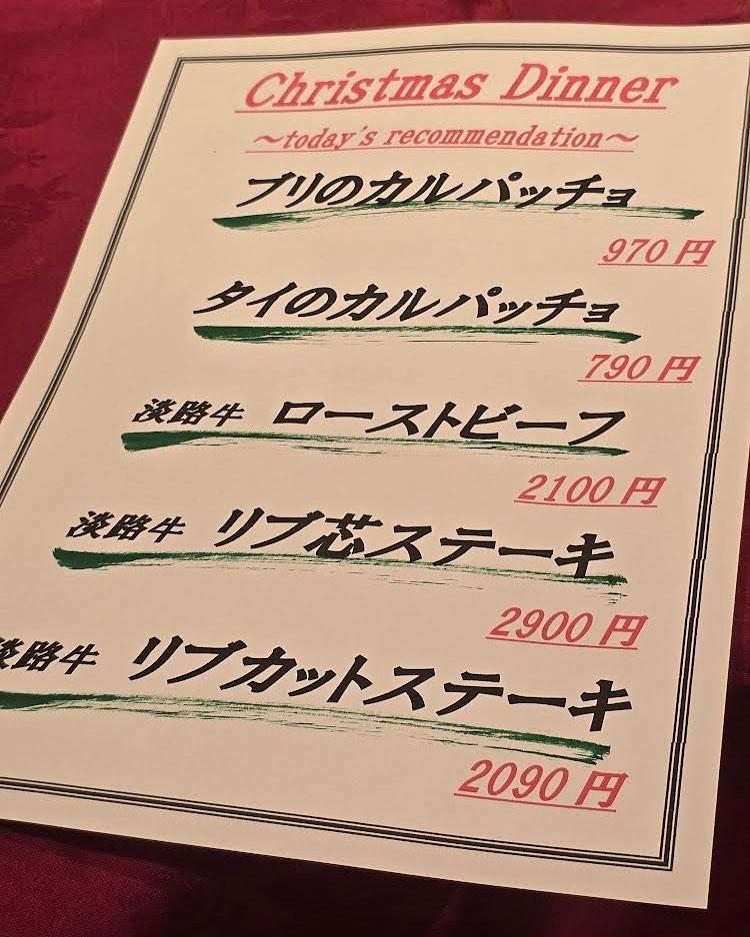 Christmas Dinner
～today's recommendation～
ブリのカルパッチョ
970円
タイのカルパッチョ
790円
淡路牛 ローストビーフ
2100円
淡路牛 リブ芯ステーキ
2900円
淡路牛 リブカットステーキ
2090円